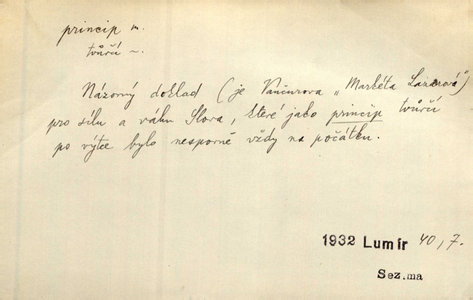 princip m.
tvůrčí ~.
Názorný doklad (je Vančurova „Markéta Lazarová")
pro sílu a váhu Slova, které jako princip tvůrčí
po výtce bylo nesporně vždy na počátku.
1932 Lumír 40, 7.
Sez.ma